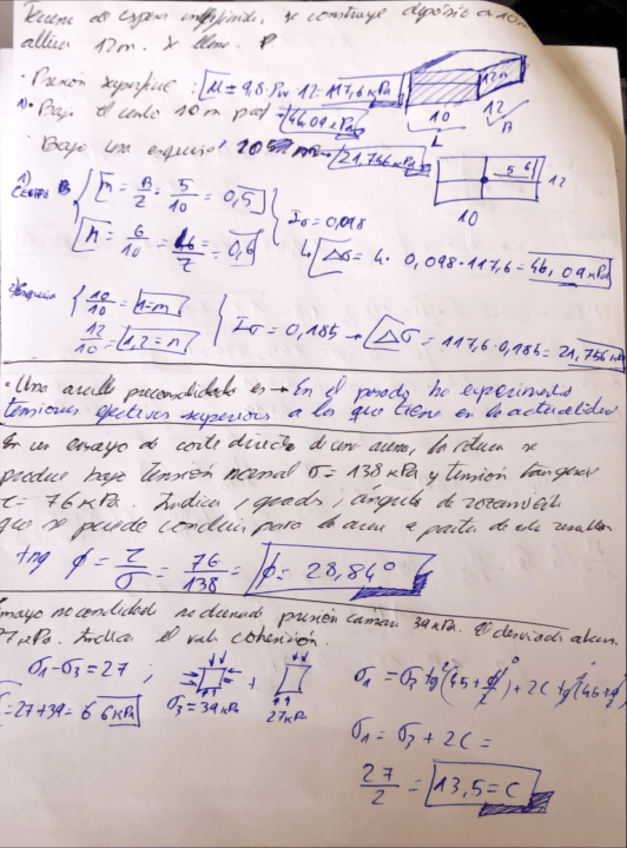 Terreno de espesor indefinido, se construye depósito de 10m
altura 12m. Se llena.
· Presión superficie : μ = 9,8 · 12 = 117,6 kPa
12m
1) · Bajo el centro 10 m prof → 46,09 kPa
10
12
L
B
Bajo una esquina 10 → 21,756 kPa
5 6
12
10
1) Centro
m = B/2 = 5/10 = 0,5
n = 6/10 = 0,6
Iσ = 0,098
4. Δσ = 4 · 0,098 · 117,6 = 46,09 kPa
2) Esquina
10/10 = 1 = m
12/10 = 1,2 = n
Iσ = 0,185 → Δσ = 117,6 · 0,185 = 21,756 kPa
· Una arcilla preconsolidada es → En el pasado ha experimentado
tensiones efectivas superiores a las que tiene en la actualidad
En un ensayo de corte directo de una arena, la rotura se
produce bajo tensión normal σ = 138 kPa y tensión tangencial
τ = 76 kPa Indica, grados, ángulo de rozamiento
que se puede concluir para la arena a partir de este resultado
tng ϕ = τ/σ = 76/138 = ϕ = 28,84°
Ensayo no consolidado no drenado presión cámara 39 kPa. El desviador
27 kPa. Indicar el valor cohesión.
σ1-σ3 = 27 ;
+
σ3 = 39 kPa
27 kPa
σ1 = σ3 tg²(45+ϕ/2) + 2c tg(45+ϕ/2)
= 27+39 = 66 kPa
σ1 = σ3 + 2C =
27/2 = 13,5 = C